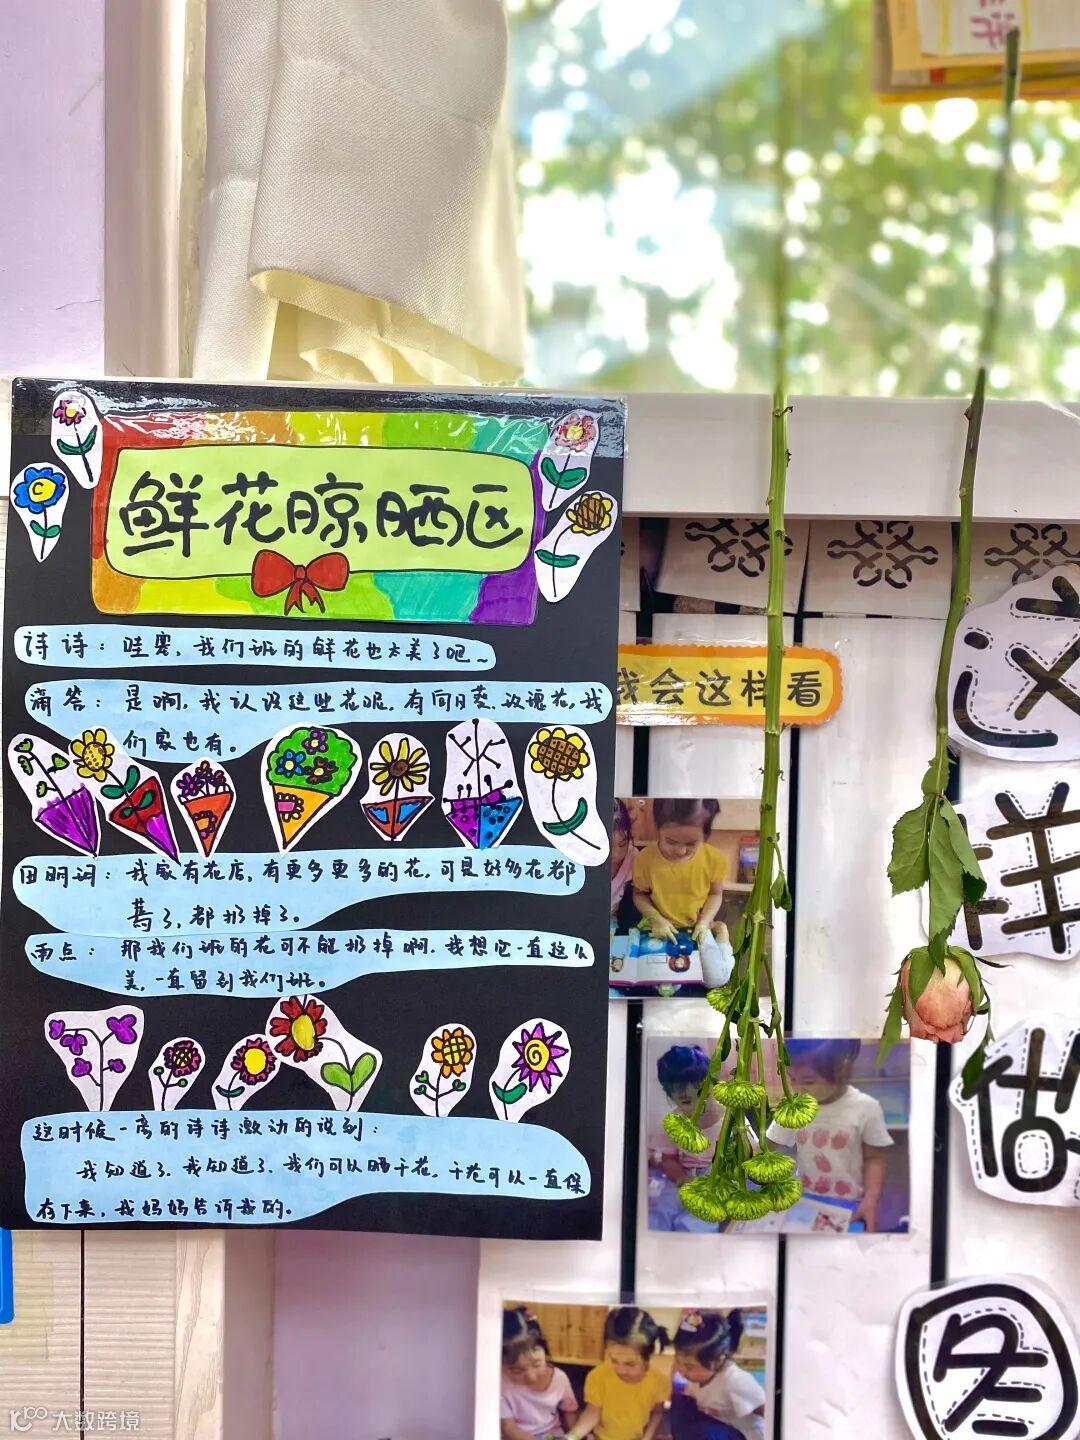 鲜花晾晒区
诗诗：哇塞，我们班的鲜花也太美了吧~
滴答：是啊，我认识这些花呢，有向日葵、玫瑰花，我
们家也有。
田玥词：我家有花店，有更多更多的花，可是好多花都
蔫了，都扔掉了。
雨点：那我们班的花可不能扔掉啊，我想它一直这么
美，一直留到我们班。
这时候一旁的诗诗激动的说到：
我知道了，我知道了，我们可以晒干花，干花可以一直保
存下来，我妈妈告诉我的。
我会这样看
这
样
做
图
大数跨境